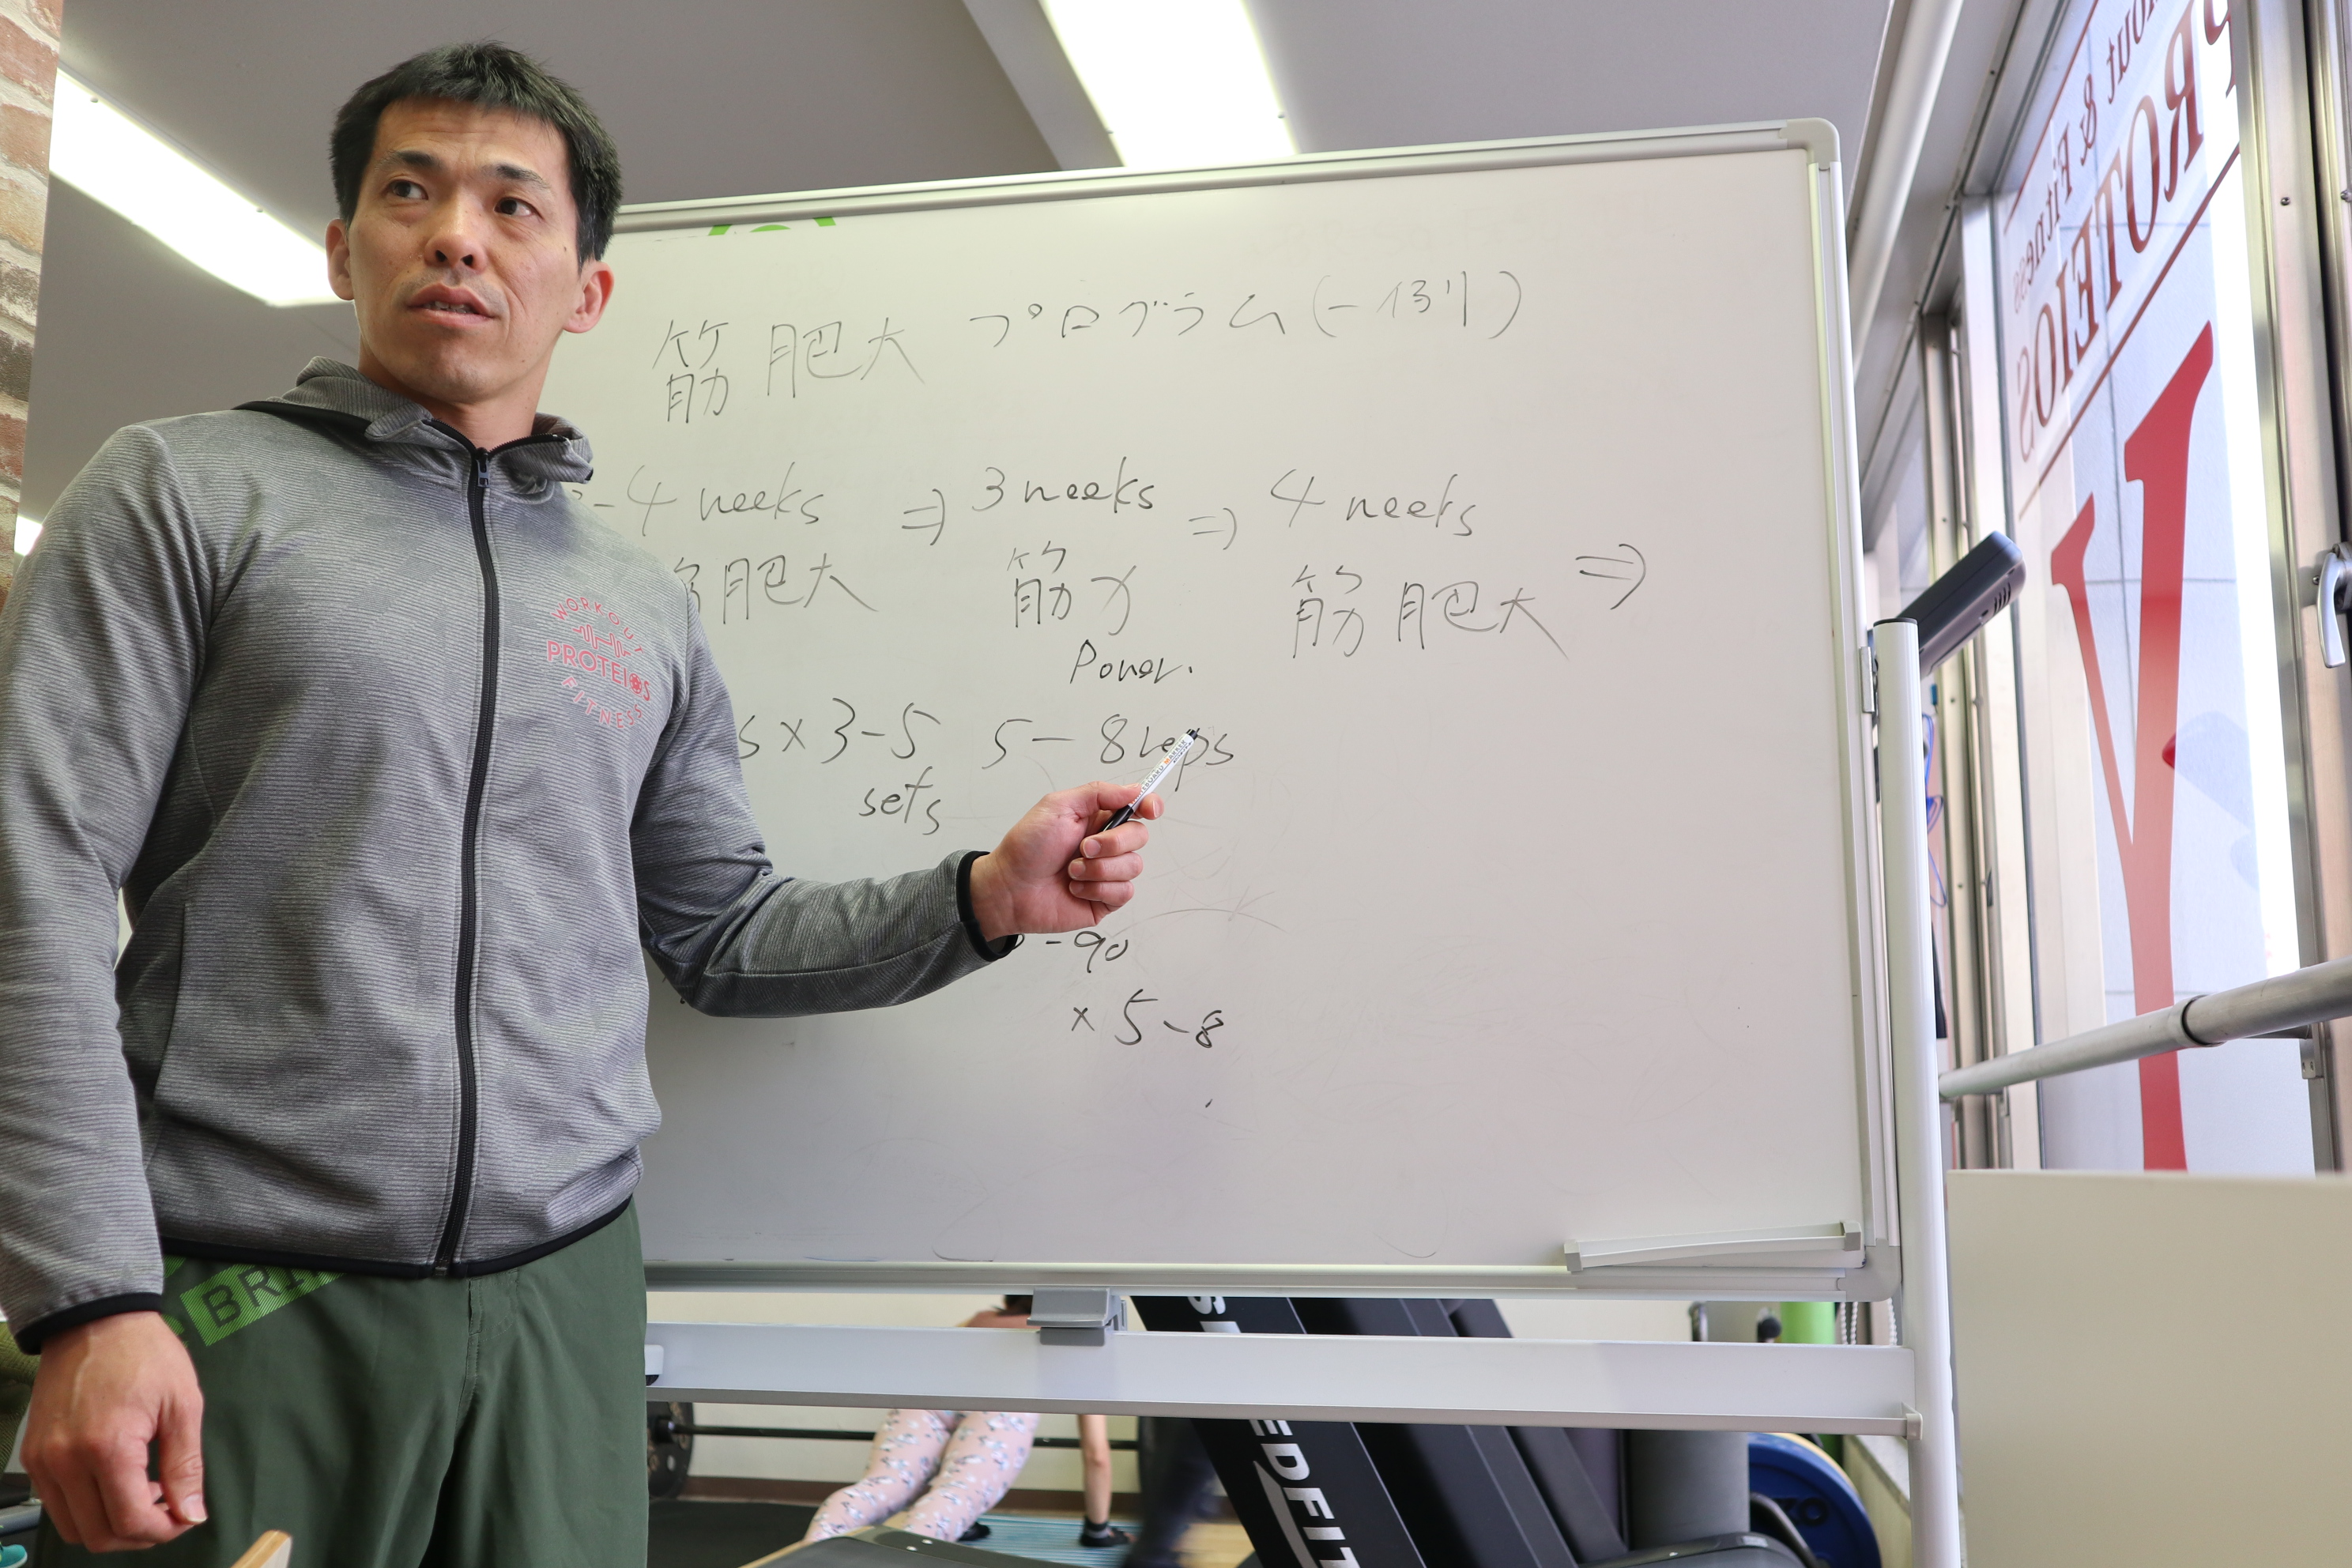 筋肥大 プログラム(一例)
-4 weeks ⇒ 3 weeks ⇒ 4 weeks
筋肥大 筋力 筋肥大 ⇒
Power.
s × 3-5 5-8 reps
sets
-90
× 5-8
WORKOUT
PROTEIOS
FITNESS
BRI
out & Fitness
PROTEIOS
Y